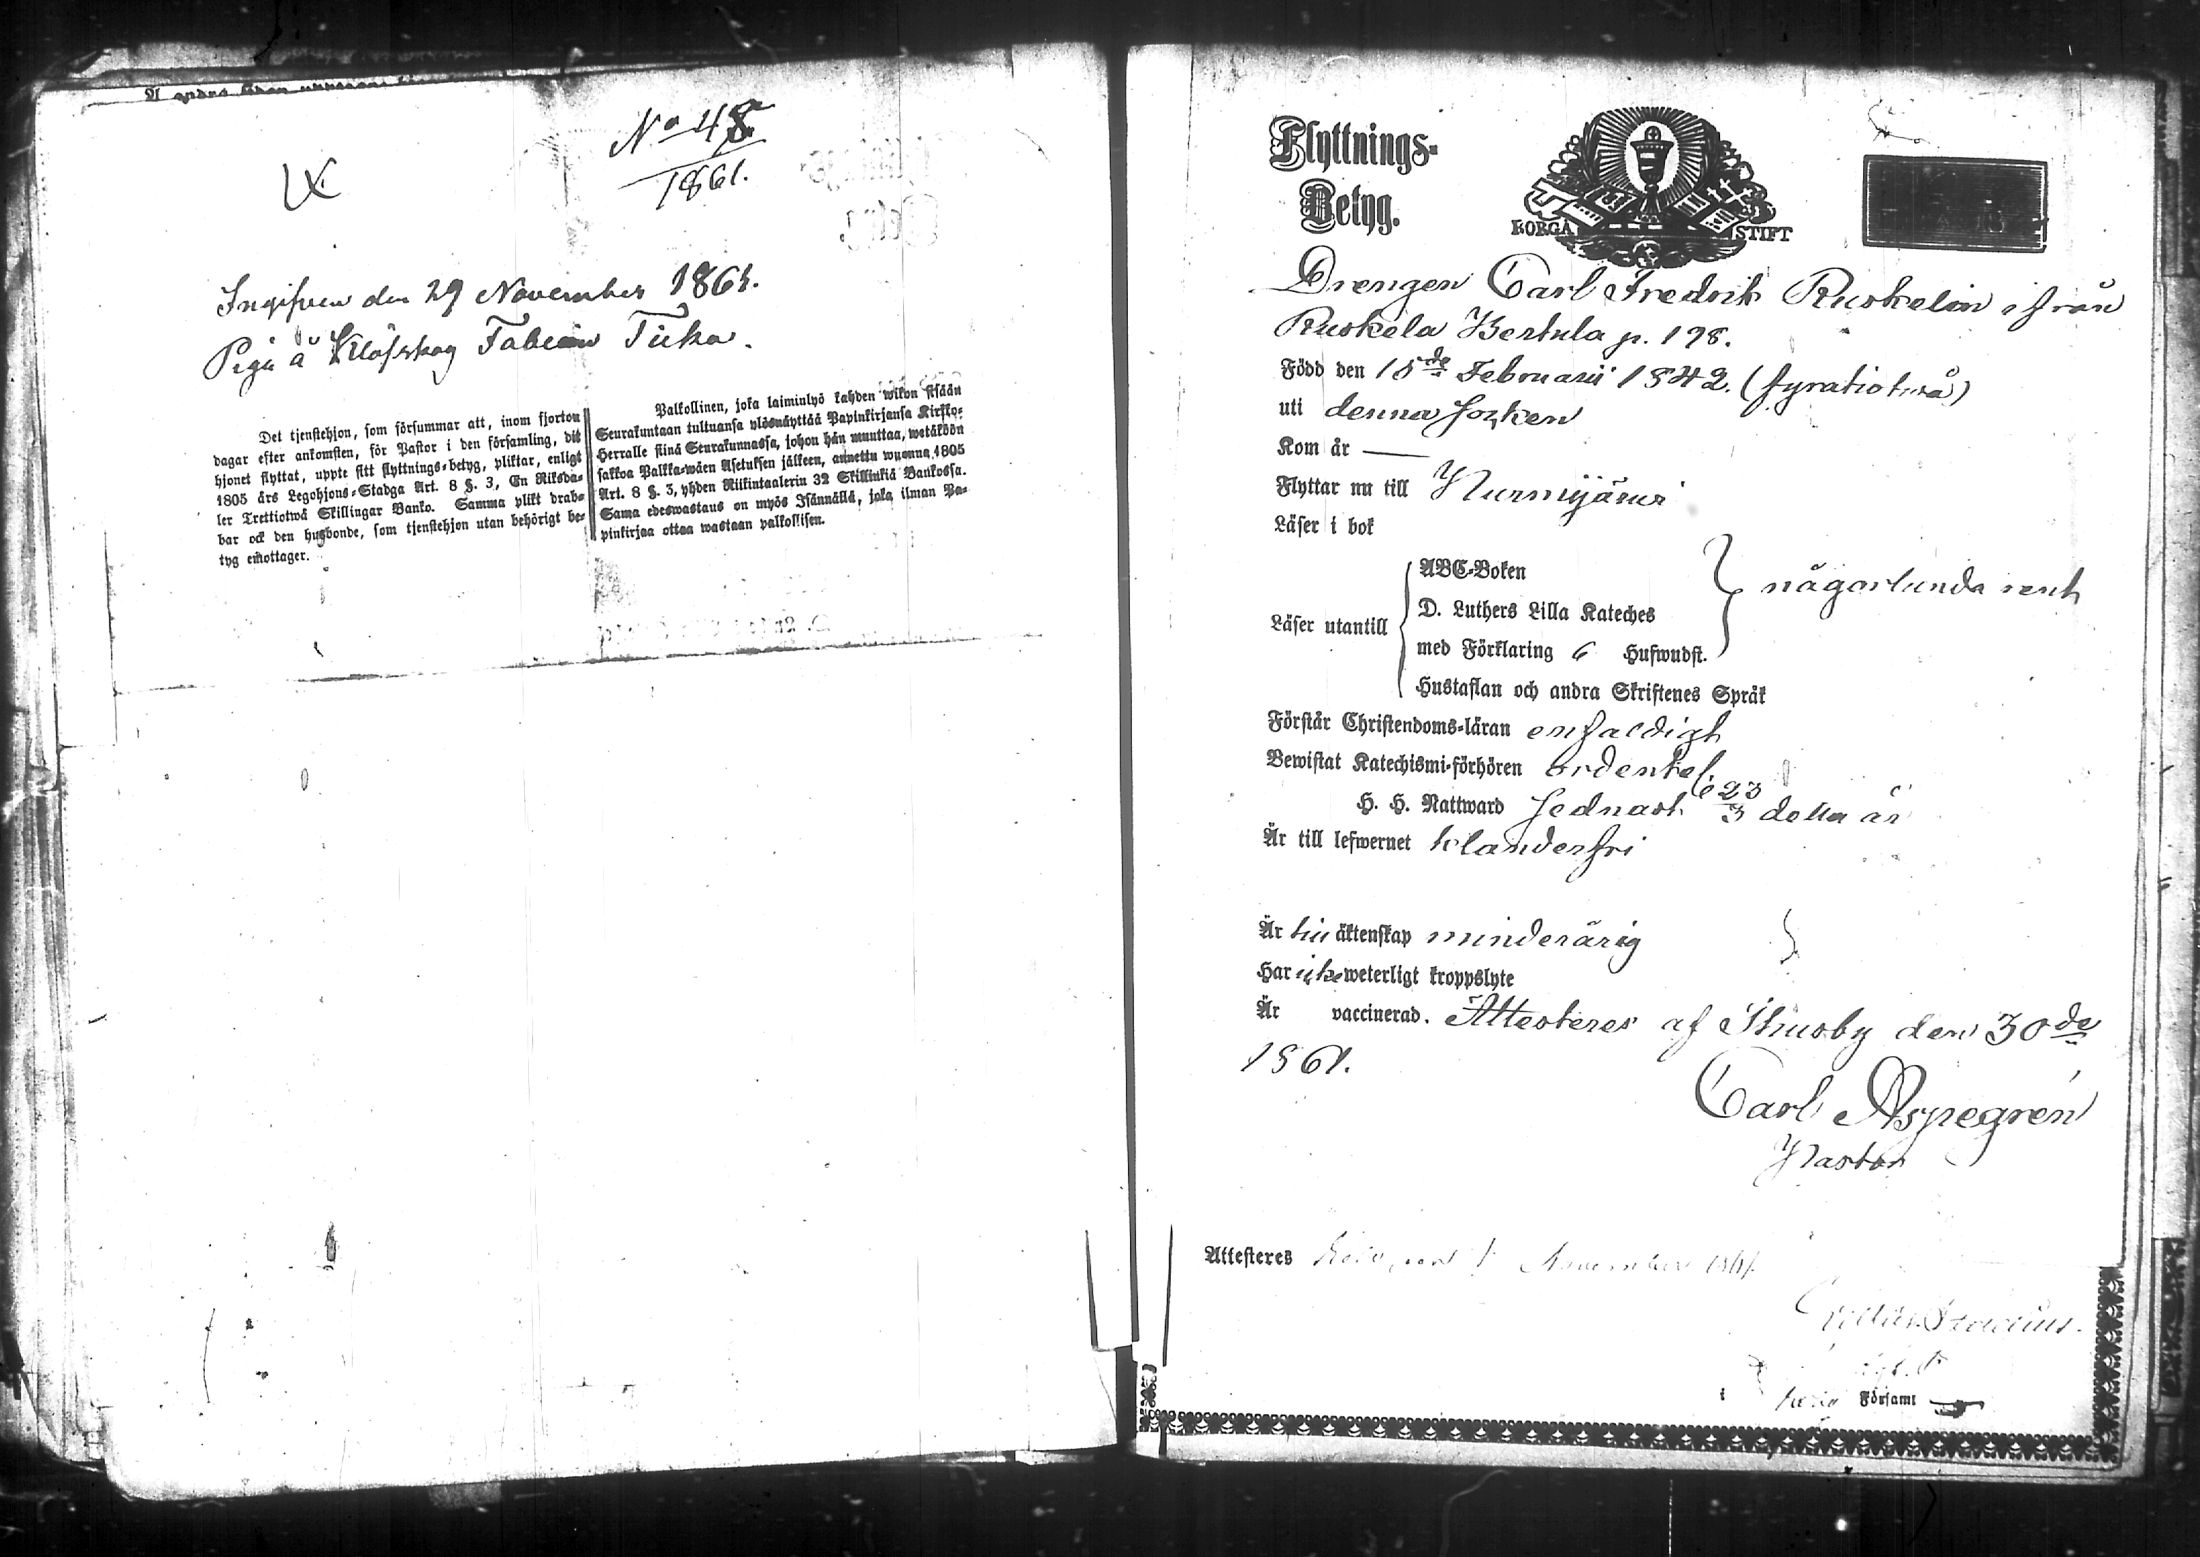 No 48
1861.
Ingifven den 29 November 1861.
Piga å Klöfskog Fabian Tuka.
Det tjenstehjon, som försummar att, inom fjorton
dagar efter ankomsten, för Pastor i den församling, dit
hjonet flyttat, uppte sitt flyttnings-betyg, pliktar, enligt
1805 års Legohjons-Stadga Art. 8 §. 3, En Riksda-
ler Trettiotwå Skillingar Banko. Samma plikt drab-
bar ock den husbonde, som tjenstehjon utan behörigt be-
tyg emottager.
Palkollinen, joka laiminlyö kahden wikon sisään
Seurakuntaan tultuansa ylösnäyttää Papinkirjansa Kirkko-
Herralle siinä Seurakunnassa, johon hän muuttaa, wetäköön
sakkoa Palkka-wäen Asetuksen jälkeen, annettu wuonna 1805
Art. 8 §. 3, yhden Riikintaalerin 32 Skillinkiä Bankossa.
Sama edeswastaus on myös Isännällä, joka ilman Pa-
pinkirjaa ottaa wastaan palkollisen.
Flyttnings-
Betyg.
BORGÅ STIFT
Drengen Carl Fredrik Ruskelin ifrån
Ruskela Bertula p. 198.
Född den 15de Februarii 1842. (fyratiotvå)
uti denna Socken
Kom år —
Flyttar nu till Nurmijärvi
Läser i bok
Läser utantill
ABC-Boken
D. Luthers Lilla Kateches
med Förklaring 6 Hufwudst.
Hustaflan och andra Skriftenes Språk
någorlunda rent
Förstår Christendoms-läran enfaldigt
Bewistat Katechismi-förhören ordentel.
H. H. Nattward sednast 23/3 detta år
Är till lefwernet klanderfri
Är till äktenskap minderårig
Har icke weterligt kroppslyte
Är vaccinerad. Attesteres af Thusby den 30de
1861.
Carl Aspegrén
Pastor
Attesteres November 1861.
i Församl